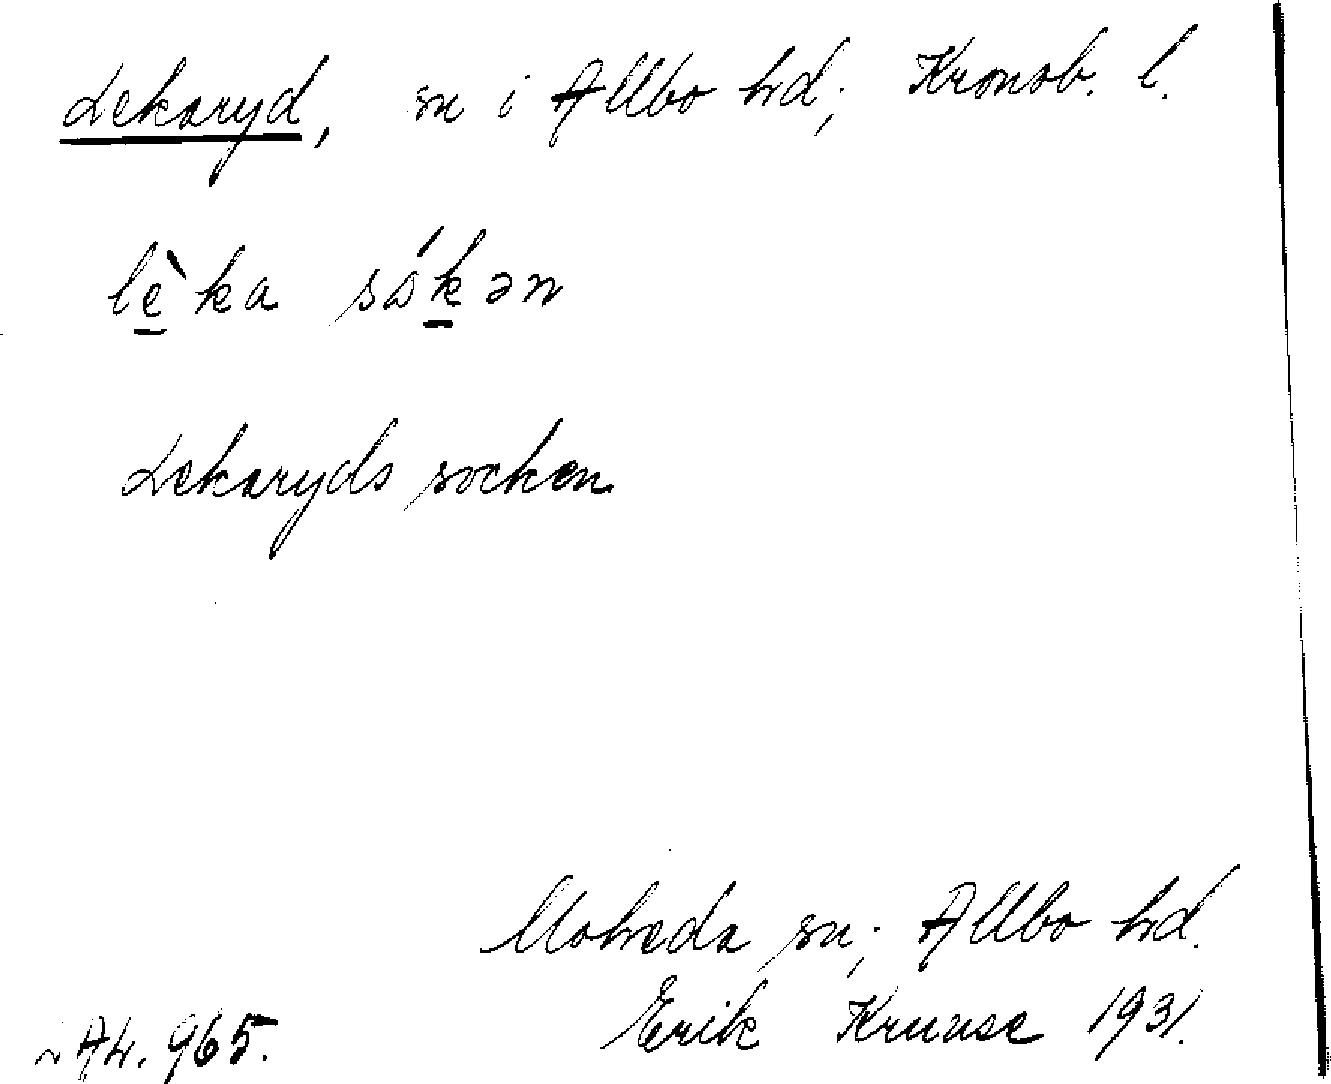 Lekaryd, sn i Allbo hd; Kronob. l.
lèka sókən
Lekaryds socken
Moheda sn; Allbo hd.
Erik Kruuse 1931.
A4. 965.